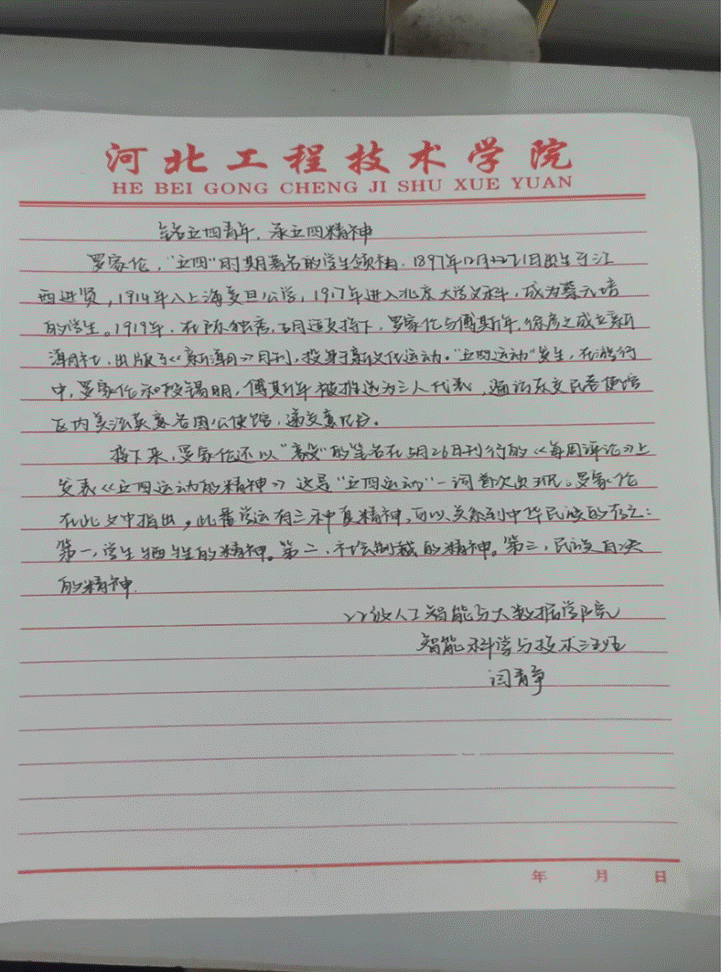 河北工程技术学院
HE BEI GONG CHENG JI SHU XUE YUAN
五四青年，承五四精神
罗家伦，“五四”时期著名的学生领袖，1897年12月21日出生于江
西进贤，1914年入上海复旦公学，1917年进入北京大学文科，成为蔡元培
的学生。1919年，在陈独秀，支持下，罗家伦与傅斯年，徐彦之成立新
潮社，出版了《新潮》月刊，投身于新文化运动。“五四运动”发生，在游行
中，罗家伦和段锡朋，傅斯年被推选为三人代表，遍访东交民巷使馆
区内美法英意各国公使馆，递交意见书。
接下来，罗家伦还以“毅”的笔名在5月26日刊行的《每周评论》上
发表《五四运动的精神》这是“五四运动”一词首次出现。罗家伦
在此文中指出，此番学运有三种真精神，可以关系到中华民族的存亡：
第一，学生牺牲的精神。第二，社会制裁的精神。第三，民族自决
的精神.
22级人工智能与大数据学院
智能科学与技术班
闫青争
年 月 日